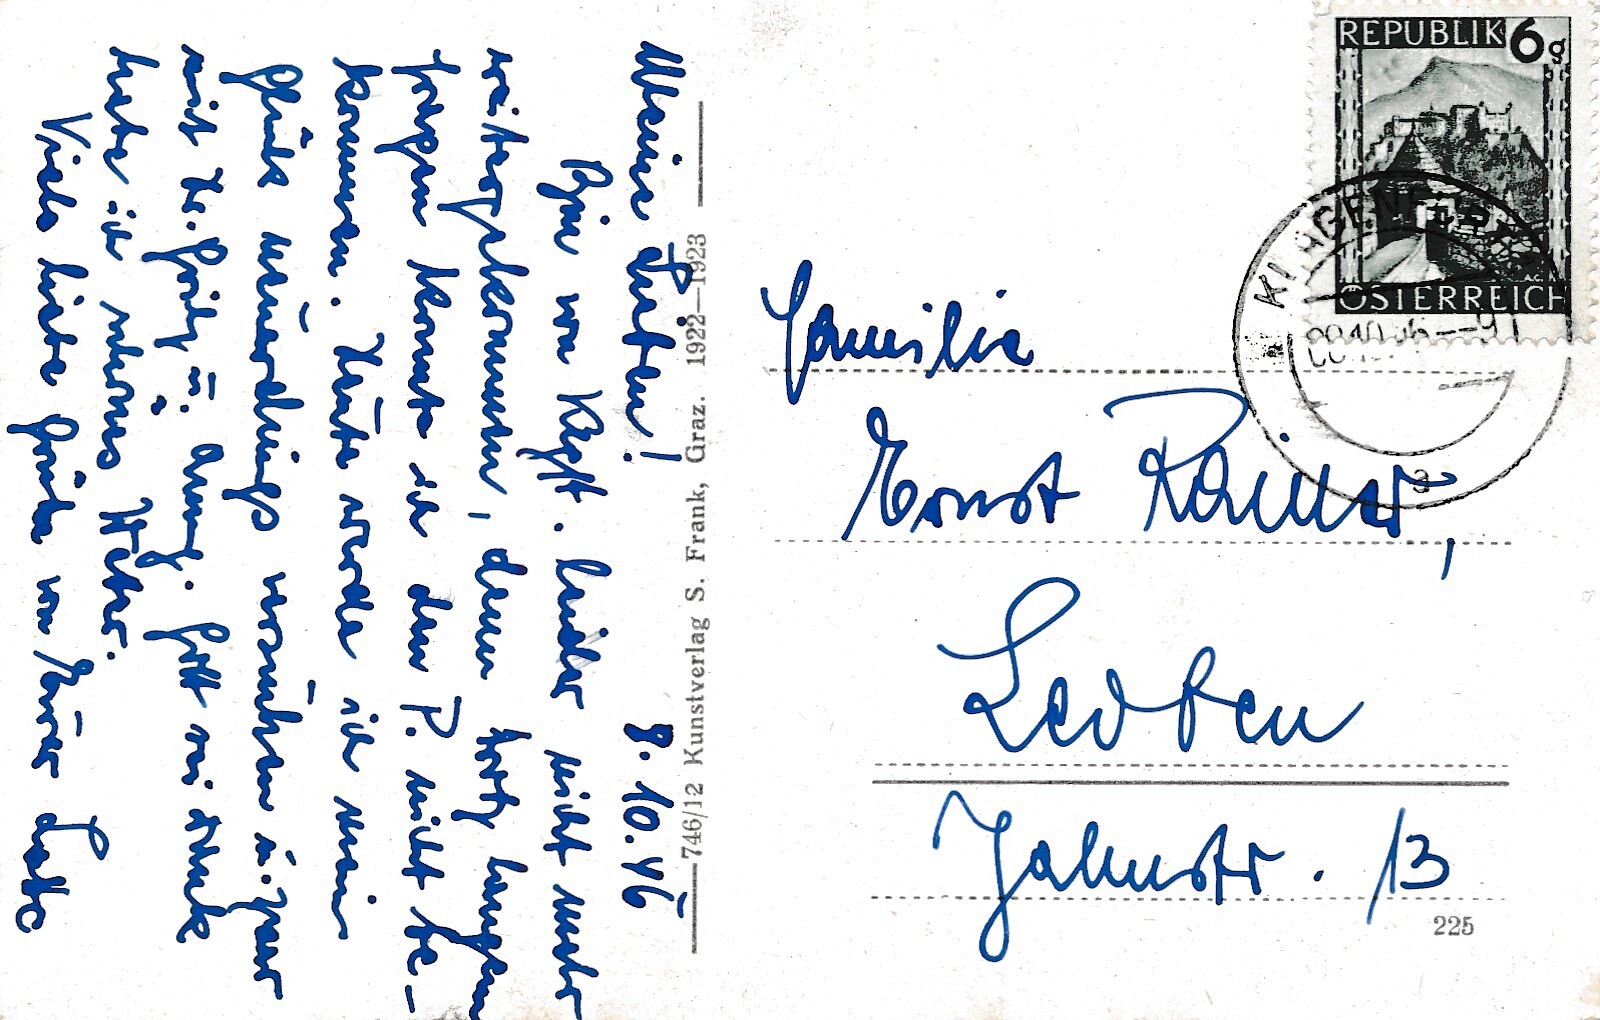 Meine Lieben!
8.10.46
Bin von Klgft. leider nicht mehr
weitergekommen, denn trotz langem
konnte ich den P. nicht be-
kommen. Heute werde ich mein
Glück neuerdings versuchen u. zwar
mit Fr. u. Gott sei Dank
habe ich schönes Wetter.
Viele liebe Grüße von Eurer Lotte
746/12 Kunstverlag S. Frank, Graz. 1922—1923
REPUBLIK 6g
ÖSTERREICH
KLAGENFURT
Familie
Ernst Rainer,
Leoben
Jahnstr. 13
225